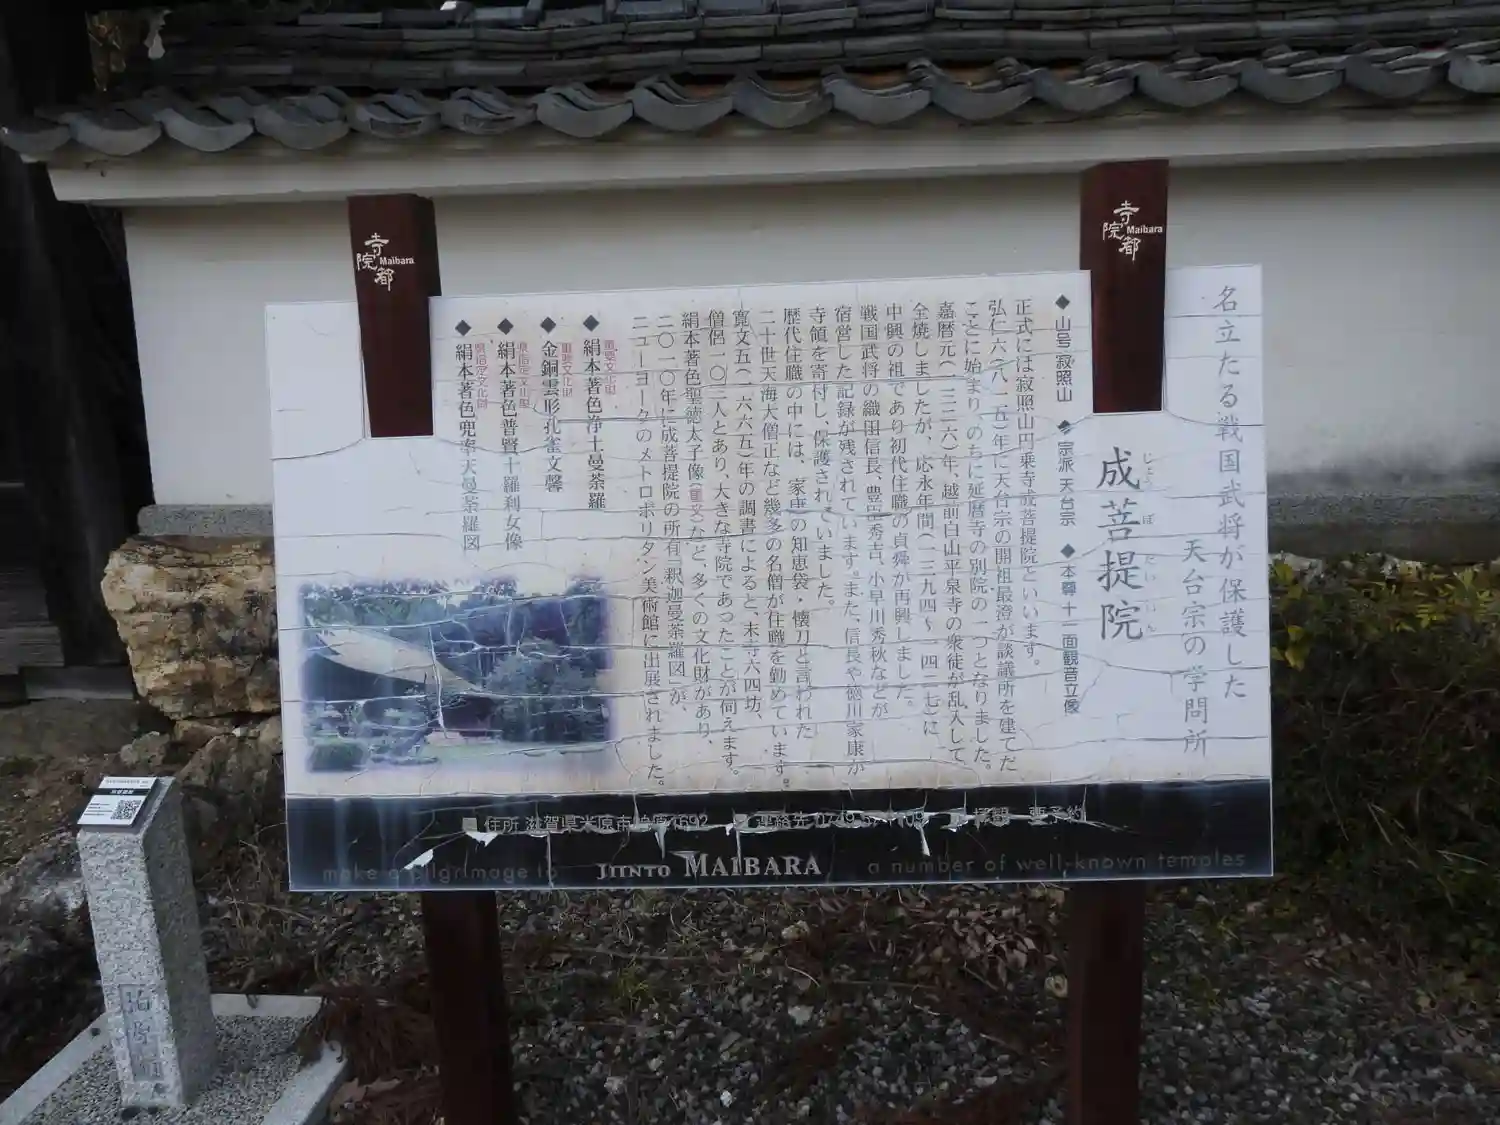 寺院都
Maibara
寺院都
Maibara
名立たる戦国武将が保護した
天台宗の学問所
成菩提院
じょう ぼ だい いん
◆山号 寂照山 ◆宗派 天台宗 ◆本尊 十一面観音立像
正式には寂照山円乗寺成菩提院といいます。
弘仁六(八一五)年に天台宗の開祖最澄が談議所を建てだ
ことに始まり、のちに延暦寺の別院の一つとなりました。
嘉暦元(一三二六)年、越前白山平泉寺の衆徒が乱入して
全焼しましたが、応永年間(一三九四～一四二七)に
中興の祖であり初代住職の貞舜が再興しました。
戦国武将の織田信長、豊臣秀吉、小早川秀秋などが
宿営した記録が残されています。また、信長や徳川家康が
寺領を寄付し、保護されていました。
歴代住職の中には、家康の知恵袋・懐刀と言われた
二十世天海大僧正など幾多の名僧が住職を勤めています。
寛文五(一六六五)年の調書によると、末寺六四坊、
僧侶一〇三人とあり、大きな寺院であったことが伺えます。
絹本著色聖徳太子像(重文)など、多くの文化財があり、
二〇一〇年に成菩提院の所有「釈迦曼荼羅図」が、
ニューヨークのメトロポリタン美術館に出展されました。
重要文化財
◆絹本著色浄土曼荼羅
重要文化財
◆金銅雲形孔雀文馨
県指定文化財
◆絹本著色普賢十羅刹女像
県指定文化財
◆絹本著色兜率天曼荼羅図
住所 滋賀県米原市柏原1692 連絡先 拝観 要予約
make a pilgrimage to JIINTO MAIBARA a number of well-known temples